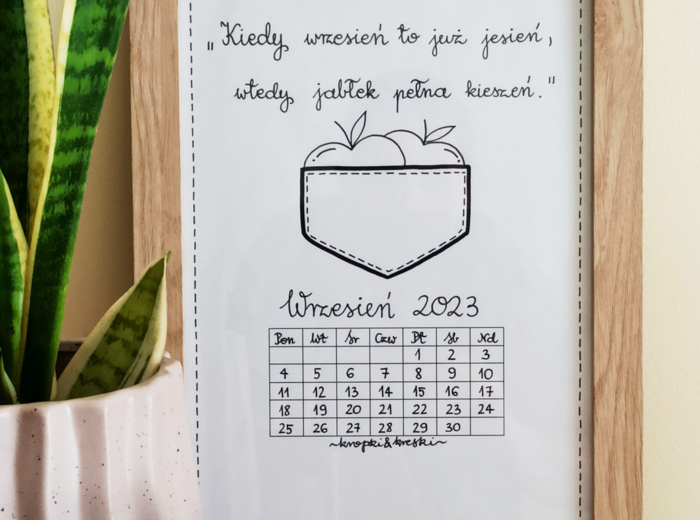 „Kiedy wrzesień to już jesień,
wtedy jabłek pełna kieszeń."
Wrzesień 2023
Pon Wt Śr Czw Pt Sb Nd
1 2 3
4 5 6 7 8 9 10
11 12 13 14 15 16 17
18 19 20 21 22 23 24
25 26 27 28 29 30
~kropki&kreski~